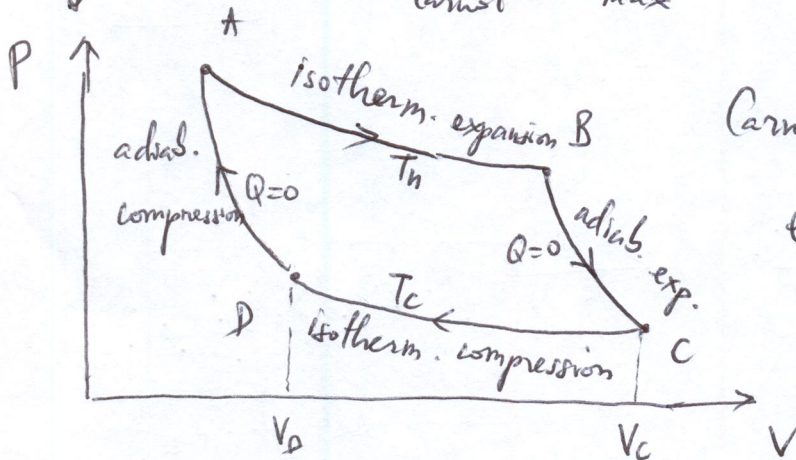 A
P
isotherm. expansion B
Carn
adiab.
Th
Q=0
compression
adiab. exp.
Q=0
Tc
D
isotherm. compression
C
VD
VC
V